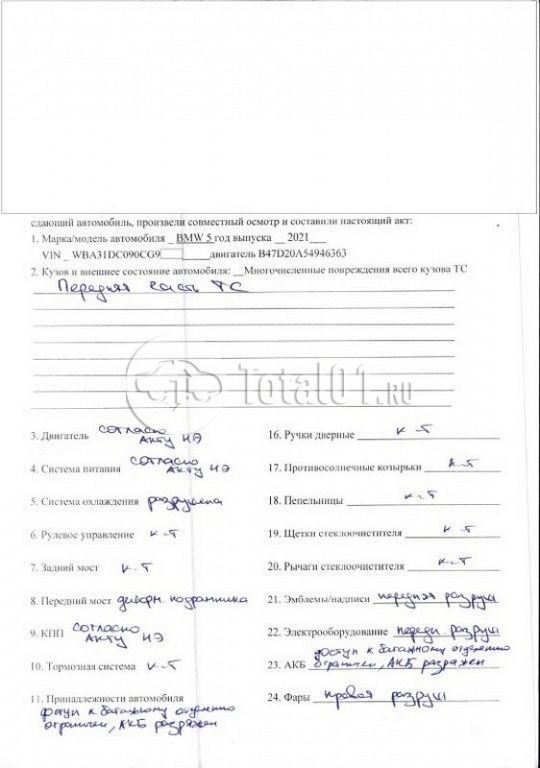 сдающий автомобиль, произвели совместный осмотр и составили настоящий акт:
1. Марка/модель автомобиля _ BMW 5 год выпуска __ 2021___
VIN _ WBA31DC090CG9 двигатель B47D20A54946363
2. Кузов и внешнее состояние автомобиля: __Многочисленные повреждения всего кузова ТС
Передняя часть ТС
Total01.RU
3. Двигатель согласно
Акту НЭ
4. Система питания согласно
Акту НЭ
5. Система охлаждения разрушена
6. Рулевое управление к-т
7. Задний мост к-т
8. Передний мост деформ. подрамника
9. КПП согласно
Акту НЭ
10. Тормозная система к-т
11. Принадлежности автомобиля
доступ к багажному отделению
ограничен, АКБ разряжен
16. Ручки дверные к-т
17. Противосолнечные козырьки к-т
18. Пепельницы к-т
19. Щетки стеклоочистителя к-т
20. Рычаги стеклоочистителя к-т
21. Эмблемы/надписи передняя разруш
22. Электрооборудование передн. разруш
доступ к багажному отделению
23. АКБ ограничен, АКБ разряжен
24. Фары правая разруш